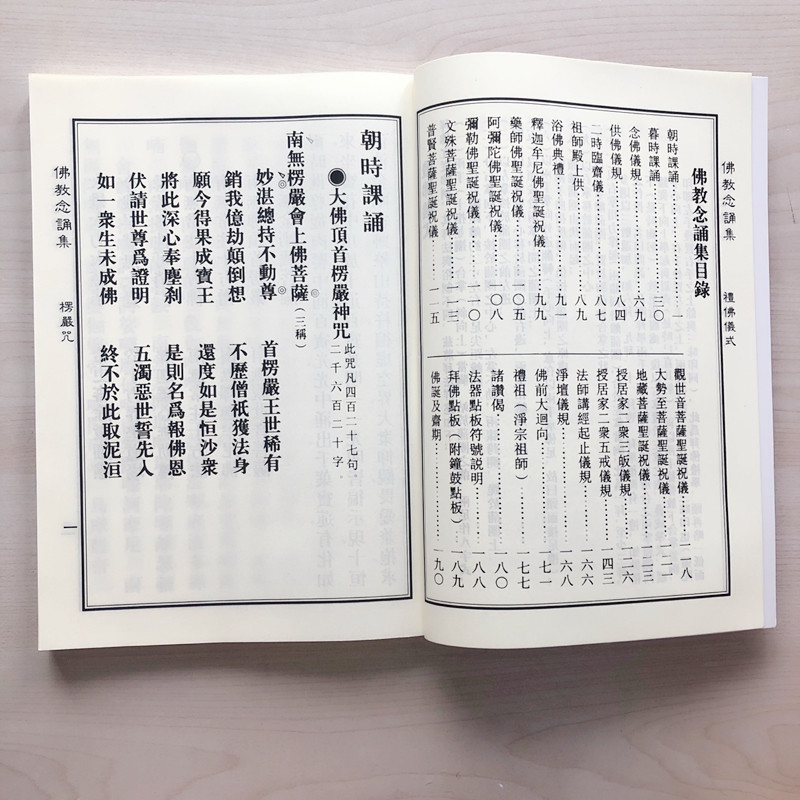 佛教念誦集
禮佛儀式
佛教念誦集目錄
朝時課誦……一
暮時課誦……三〇
念佛儀規……六九
供佛儀規……八四
二時臨齋儀……八七
祖師殿上供……八九
浴佛典禮……九一
釋迦牟尼佛聖誕祝儀……九九
藥師佛聖誕祝儀……一〇五
阿彌陀佛聖誕祝儀……一〇八
彌勒佛聖誕祝儀……一一〇
文殊菩薩聖誕祝儀……一一三
普賢菩薩聖誕祝儀……一一五
觀世音菩薩聖誕祝儀……一一八
大勢至菩薩聖誕祝儀……一二一
地藏菩薩聖誕祝儀……一二三
授居家二衆三皈儀規……一二六
授居家二衆五戒儀規……一四三
法師講經起止儀規……一六六
淨壇儀規……一六八
佛前大迴向……一七一
禮祖（淨宗祖師）……一七七
諸讚偈……一八〇
法器點板符號説明……一八八
拜佛點板（附鐘鼓點板）……一八九
佛誕及齋期……一九〇
朝時課誦
●大佛頂首楞嚴神咒
此咒凡四百二十七句，
二千六百二十字。
南無楞嚴會上佛菩薩（三稱）
妙湛總持不動尊　首楞嚴王世稀有
銷我億劫顛倒想　不歷僧祇獲法身
願今得果成寶王　還度如是恒沙衆
將此深心奉塵刹　是則名爲報佛恩
伏請世尊爲證明　五濁惡世誓先入
如一衆生未成佛　終不於此取泥洹
佛教念誦集
楞嚴咒
一